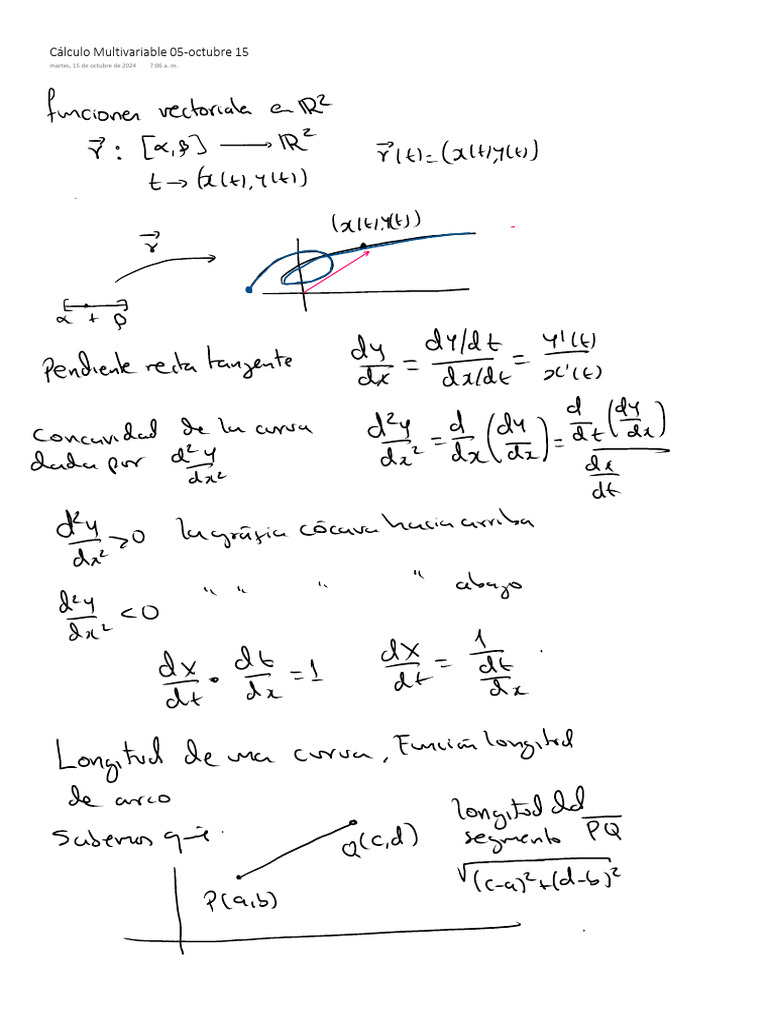 Cálculo Multivariable 05-octubre 15
martes, 15 de octubre de 2024 7:06 a. m.
funciones vectoriales en ℝ²
r⃗ : [α,β] ⟶ ℝ² r⃗(t)=(x(t),y(t))
t → (x(t),y(t))
(x(t),y(t))
r⃗
α t β
Pendiente recta tangente dy/dx = (dy/dt)/(dx/dt) = y'(t)/x'(t)
Concavidad de la curva
dada por d²y/dx² d²y/dx² = d/dx (dy/dx) = (d/dt (dy/dx))/(dx/dt)
d²y/dx² > 0 la gráfica cócava hacia arriba
d²y/dx² < 0 " " " " abajo
dx/dt · dt/dx = 1 dx/dt = 1/(dt/dx)
Longitud de una curva, Función longitud
de arco
Sabemos que
P(a,b)
Q(c,d)
longitud del
segmento PQ
√((c-a)²+(d-b)²)